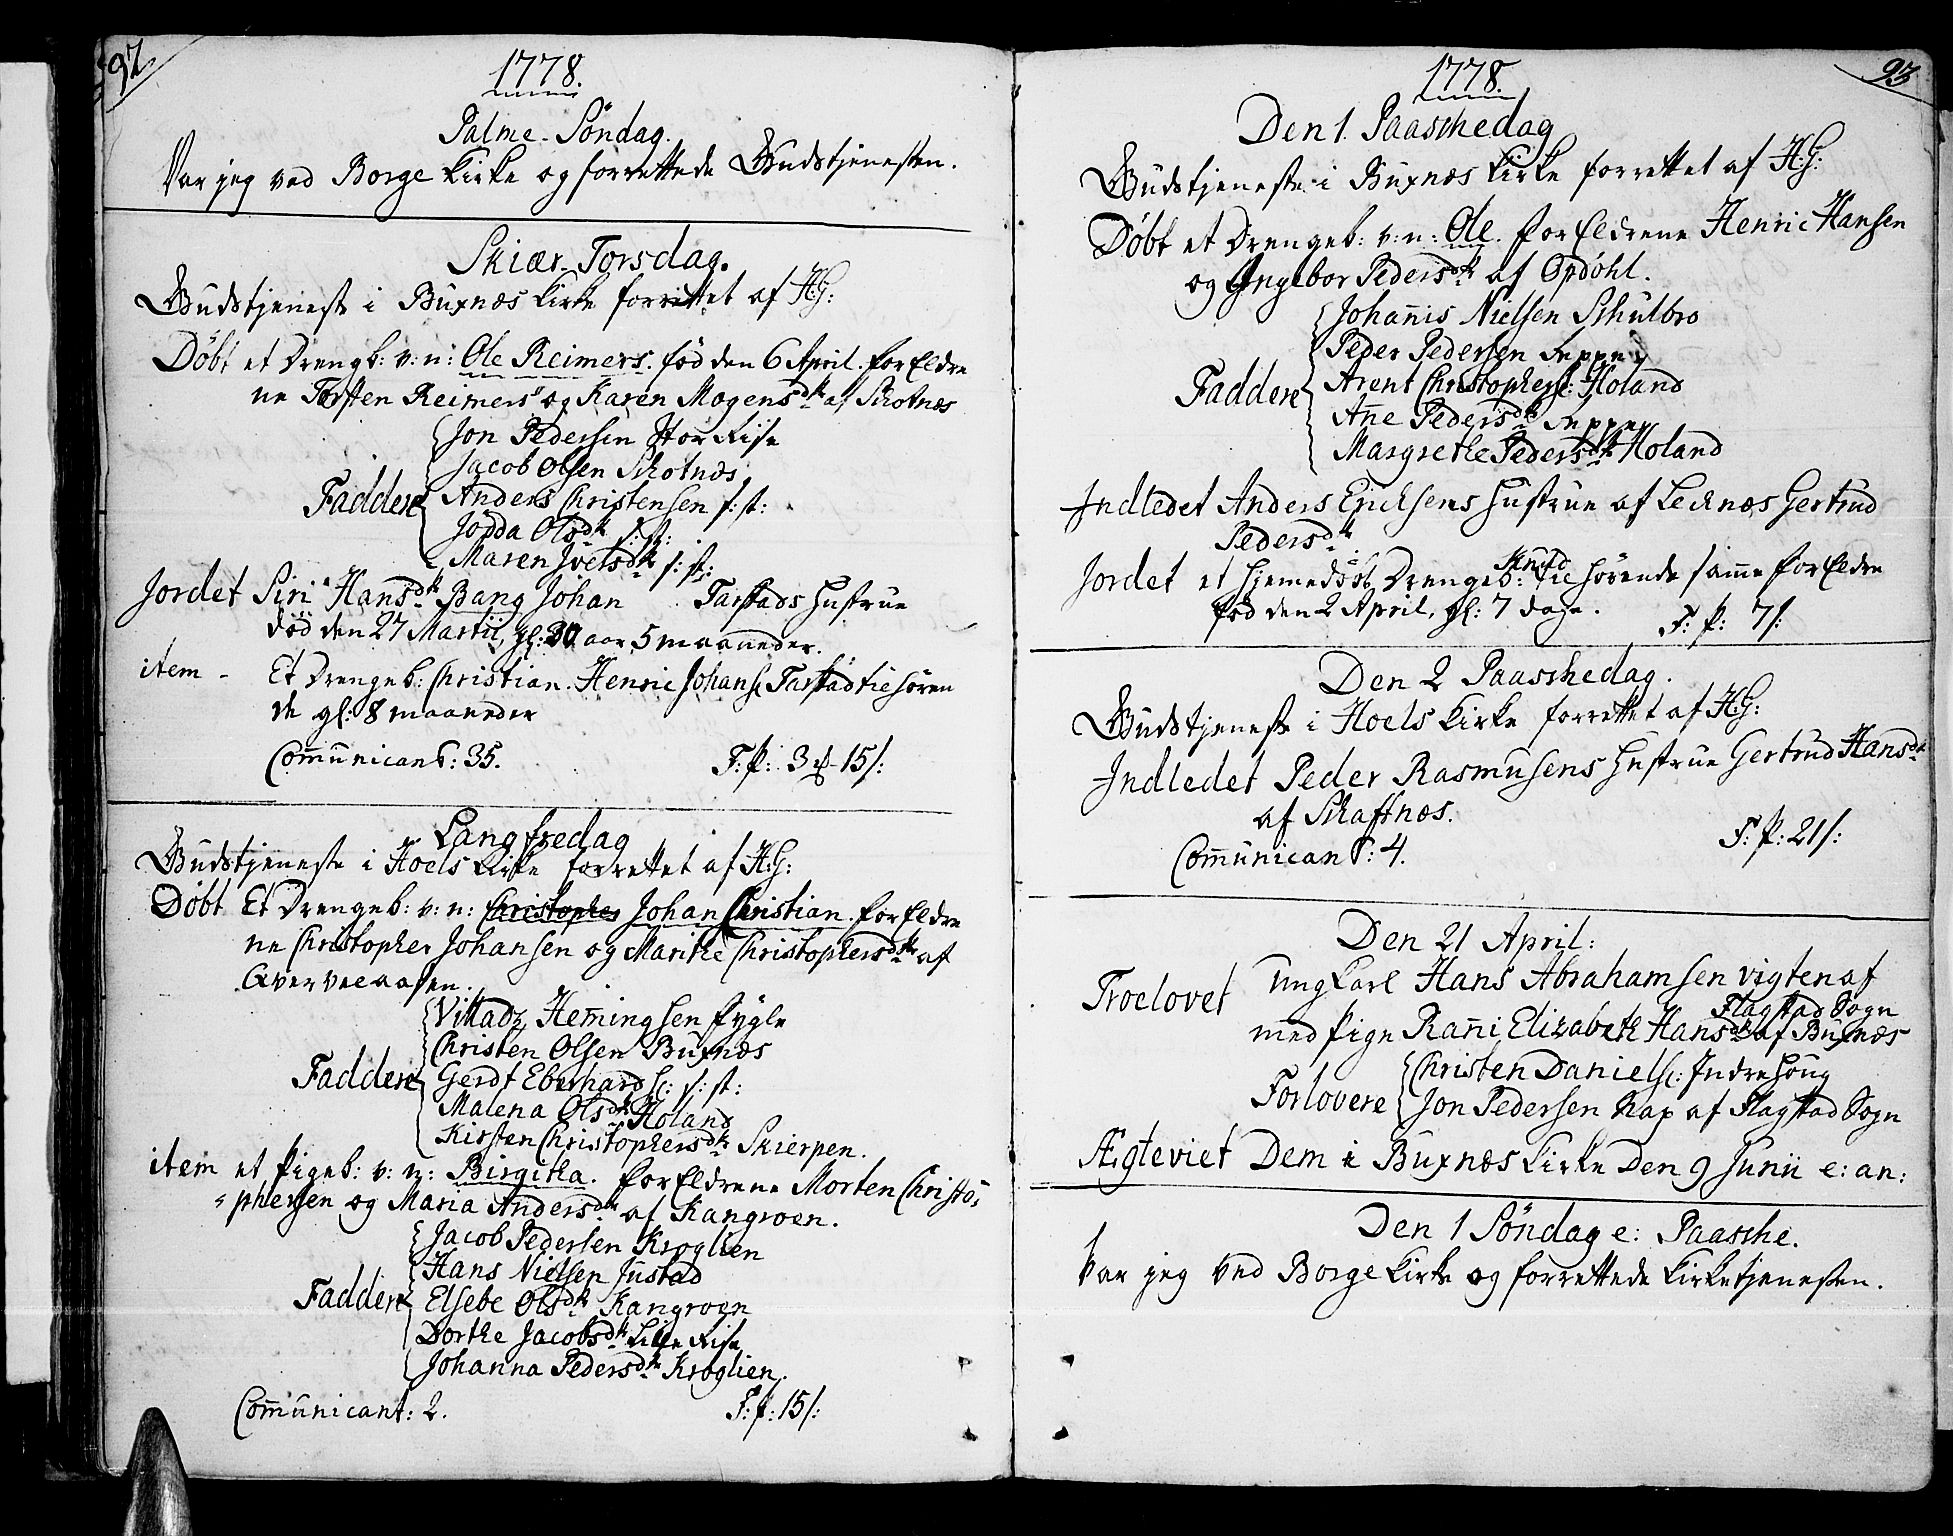 92.
1778.
Palme-Söndag.
Var jeg ved Borge Kirke og forrettede Gudstjenesten.
Skiær-Torsdag.
Gudstjeneste i Buxnæs Kirke forrettet af H:G:
Döbt et Drengb: v: n: Ole Reimers. föd den 6 April. forEldre
ne Torsten Reimers og Karen Mogensdtr af Skotnæs
Jon Pedersen Stor Rise
Jacob Olsen Skotnæs
Faddere Anders Christensen s: st:
Olsdtr s: st:
Maren Jvelsdtr s: st:
Jordet Siri Hansdtr Bang Johan Tarstads Hustrue
död den 27 Martii, gl: 30 aar 5 maaneder.
item - Et Drengeb: Christian. Henric Johans: Tarstad tilhören
de gl: 8 maaneder
Communicant: 35. T: P: 3 15 s:
Langfredag
Gudstjeneste i Hoels Kirke forrettet af H:G:
Döbt Et Drengeb: v: n: Christopher Johan Christian. forEldre
ne Christopher Johansen og Marithe Christophersdtr af
Villadz Hemingsen Pygle
Christen Olsen Buxnæs
Faddere Gerdt Eberhards: s: st:
Malena Olsdtr Holand
Kirsten Christophersdtr Skierpen.
item et Pigeb: v: n: Birgitha. forEldrene Morten Christo,,
,,phersen og Maria Andersdtr af Kangroen.
Jacob Pedersen Kroglien
Hans Nielsen Justad
Faddere Elsebe Olsdtr Kangroen
Dorthe Jacobsdtr Lille Rise
Johanna Pedersdtr Kroglien.
Communicant: 2. T: P: 15 s:
93
1778.
Den 1. Paaschedag
Gudstjeneste i Buxnæs Kirke forrettet af H:G:
Döbt et Drengeb: v: n: Ole. forEldrene Henric Hansen
og Ingebor Pedersdtr af Opdöhl.
Johannis Nielsen Schulbro
Peder Pedersen Seppe
Faddere Arent Christophers: Holand
Anne Pedersdtr
Margrethe Pedersdtr Holand
Indledet Anders Ericksens Hustrue af Lecknæs Gertrud
Pedersdtr
Knud
Jordet et hjemedöbt Drengeb: tilhörende samme forEldre
föd den 2 April, gl: 7 dage. T: P: 7 s:
Den 2 Paaschedag.
Gudstjeneste i Hoels Kirke forrettet af H:G:
Indledet Peder Rasmusens Hustrue Gertrud Hansdtr
af Skaftnæs.
Communicant: 4. T: P: 21 s:
Den 21 April:
Troelovet Ung Karl Hans Abrahamsen Vigten af
Flagstad Sogn
med Pige Ranni Elizabeth Hansdtr af Buxnæs
Christen Daniels: Indrehöug
Forlovere Jon Pedersen Nap af Flagstad Sogn
Ægteviet Dem i Buxnæs Kirke Den 9 Junii e: an:
Den 1 Söndag e: Paasche.
Var jeg ved Borge Kirke og forrettede Kirketjenesten.